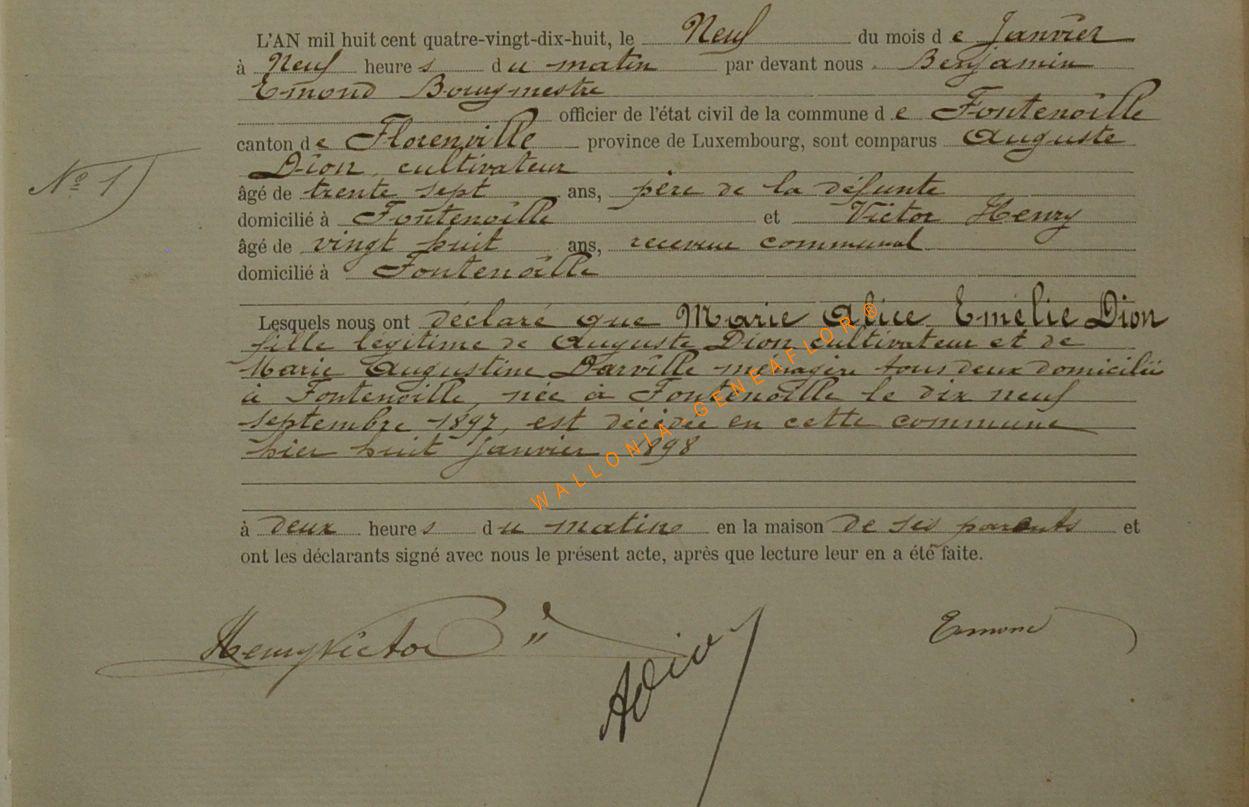 L'AN mil huit cent quatre-vingt-dix-huit, le Neuf du mois de Janvier
à Neuf heures du matin par devant nous Benjamin
Emond Bourgmestre
officier de l'état civil de la commune de Fontenoille
canton de Florenville province de Luxembourg, sont comparus Auguste
Dion, cultivateur
N° 1
âgé de trente sept ans, père de la défunte
domicilié à Fontenoille et Victor Henry
âgé de vingt huit ans, receveur communal
domicilié à Fontenoille
Lesquels nous ont déclaré que Marie Alice Emélie Dion
fille légitime de Auguste Dion cultivateur et de
Marie Augustine Darville ménagère tous deux domiciliés
à Fontenoille, née à Fontenoille le dix neuf
septembre 1897, est décédée en cette commune
hier huit janvier 1898
WALLONIA-GENEAFLOR®
à deux heures du matin en la maison de ses parents et
ont les déclarants signé avec nous le présent acte, après que lecture leur en a été faite.
Henry Victor ADion Emond